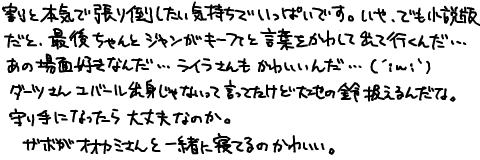 割と本気で張り倒したい気持ちでいっぱいです。いや、でも小説版
だと、最後ちゃんとジャンがキーファと言葉をかわして出て行くんだ…
あの場面好きなんだ… ライラさんもかわいいんだ… (´;ω;`)
ダーツさん ユバール出身じゃないって言ってたけど大地の鈴扱えるんだな。
守り手になったら大丈夫なのか。
ガボがオオカミさんと一緒に寝てるのかわいい。